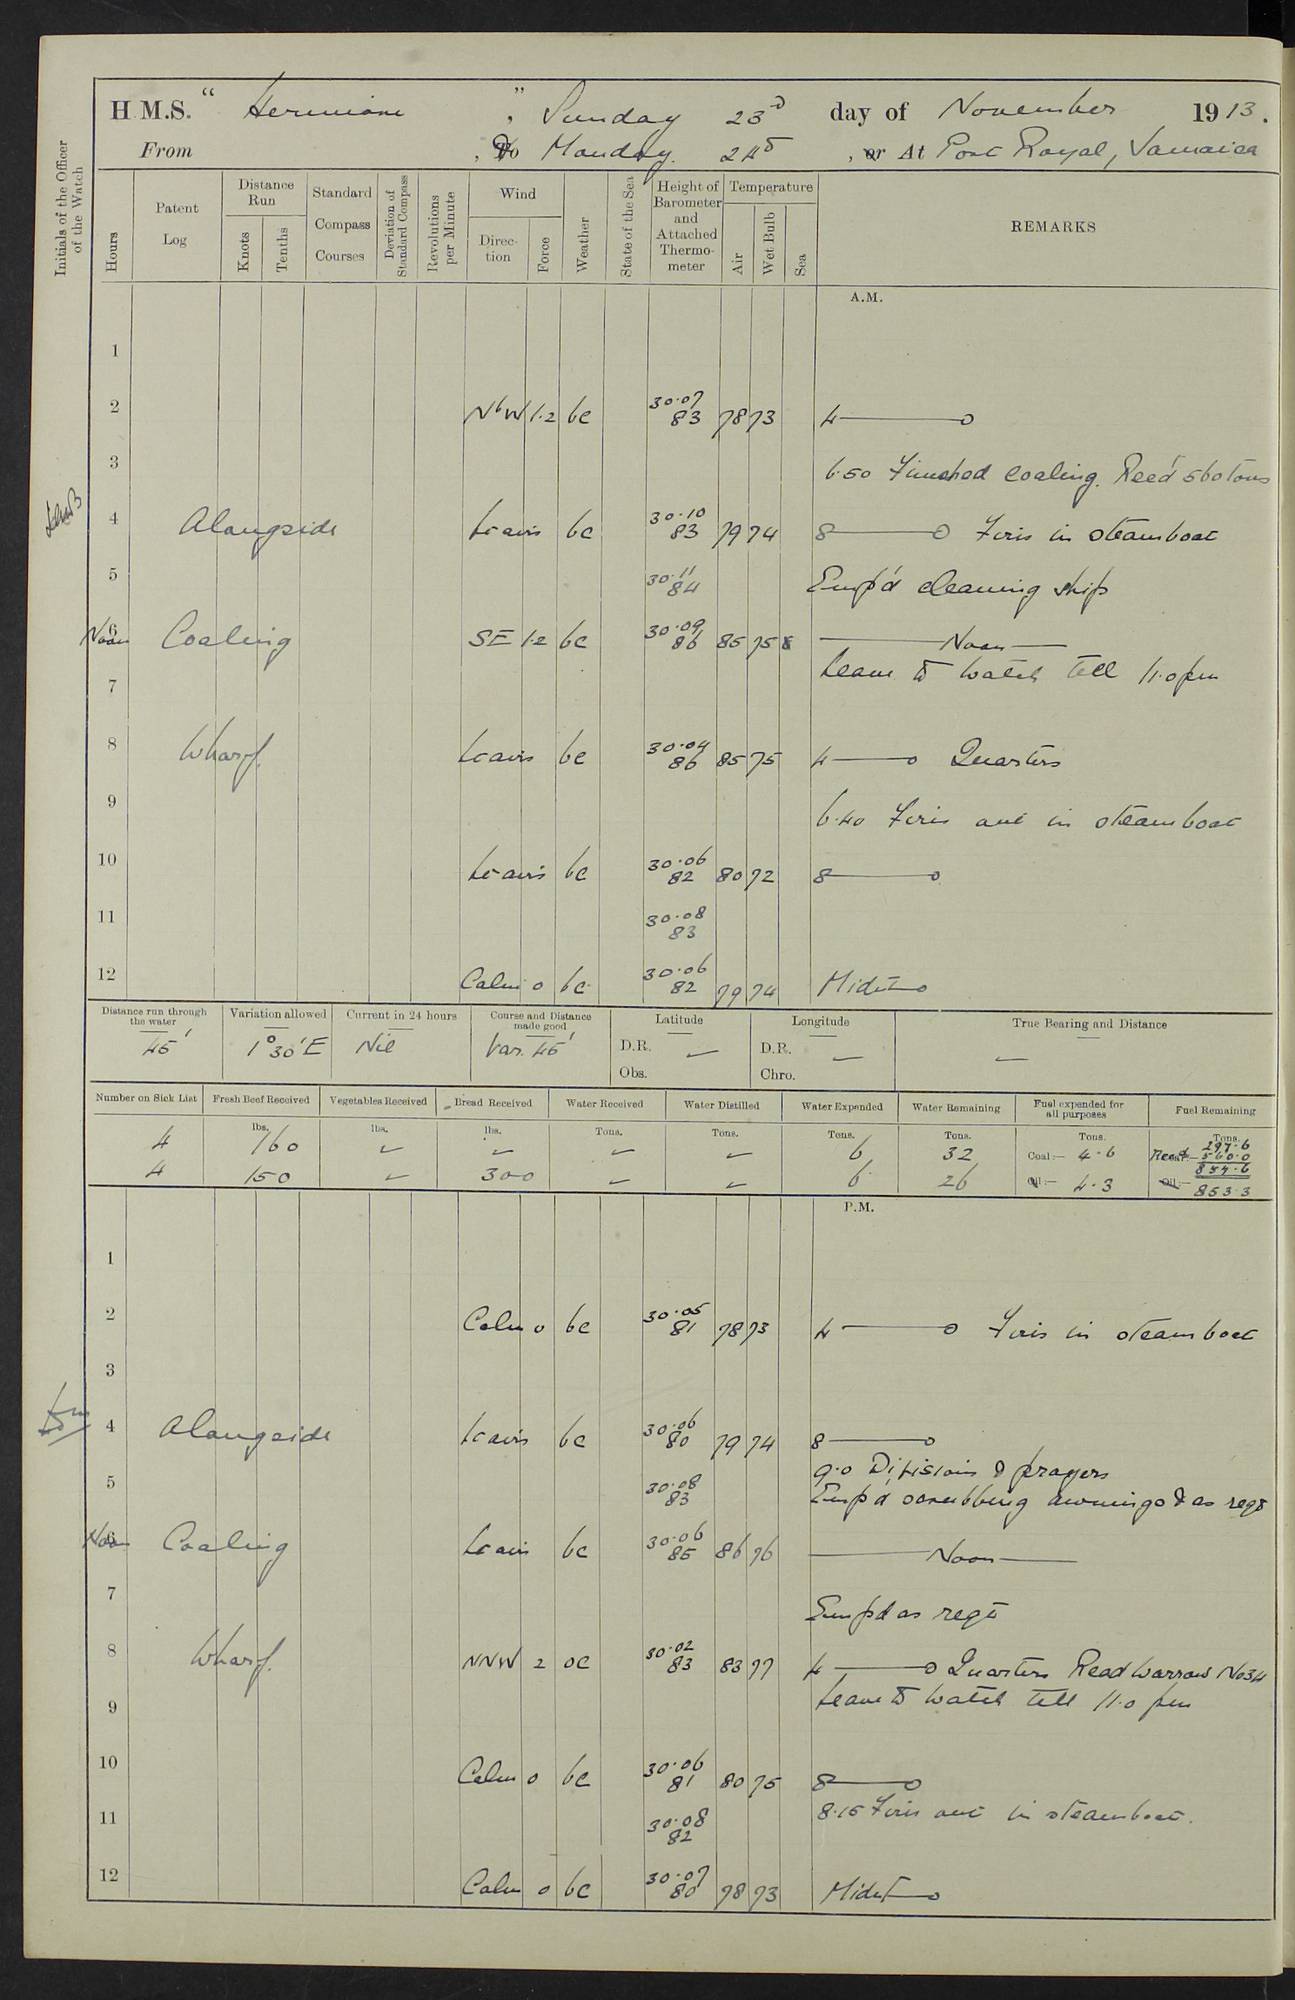 H.M.S. " Hermione ", Sunday 23d day of November 1913.
From , To Monday 24th , or At Port Royal, Jamaica
Initials of the Officer of the Watch
Hours Patent Log Distance Run Knots Tenths Standard Compass Courses Deviation of Standard Compass Revolutions per Minute Wind Direction Force Weather State of the Sea Height of Barometer and Attached Thermometer Temperature Air Wet Bulb Sea REMARKS
A.M.
1
2 NbW 1.2 bc 30.07 83 78 73 4
3 6.50 Finished coaling. Rec'd 560 tons
4 Alongside Lt airs bc 30.10 83 79 74 8 Fires in steamboat
5 30.11 84 Emp'd cleaning ship
6 Noon Coaling SE 1.2 bc 30.09 86 85 75 Noon
Leave to watch till 11.0 pm
7
8 Wharf. Lt airs bc 30.04 86 85 75 4 Quarters
9 6.40 Fires out in steamboat
10 Lt airs bc 30.06 82 80 72 8
11 30.08 83
12 Calm 0 bc 30.06 82 79 74 Midt
Distance run through the water Variation allowed Current in 24 hours Course and Distance made good Latitude Longitude True Bearing and Distance
45' 1° 30' E Nil Var. 45' D.R. — D.R. — —
Obs. Chro.
Number on Sick List Fresh Beef Received Vegetables Received Bread Received Water Received Water Distilled Water Expended Water Remaining Fuel expended for all purposes Fuel Remaining
lbs. lbs. lbs. Tons. Tons. Tons. Tons. Tons. Tons.
297.6
4 160 — — — — 6 32 Coal:— 4.6 Recd 560.0
857.6
4 150 — 300 — — 6 26 Oil:— 4.3 Oil:— 853.3
P.M.
1
2 Calm 0 bc 30.05 81 78 73 4 Fires in steamboat
3
4 Alongside Lt airs bc 30.06 80 79 74 8
9.0 Divisions & prayers
5 30.08 83 Emp'd scrubbing awnings & as reqd
6 Noon Coaling Lt airs bc 30.06 85 86 76 Noon
7 Emp'd as reqd
8 Wharf. NNW 2 oc 30.02 83 83 77 4 Quarters Read Warrant No 34
Leave to watch till 11.0 pm
9
10 Calm 0 bc 30.06 81 80 75 8
8.15 Fires out in steamboat.
11 30.08 82
12 Calm 0 bc 30.07 80 78 73 Midt